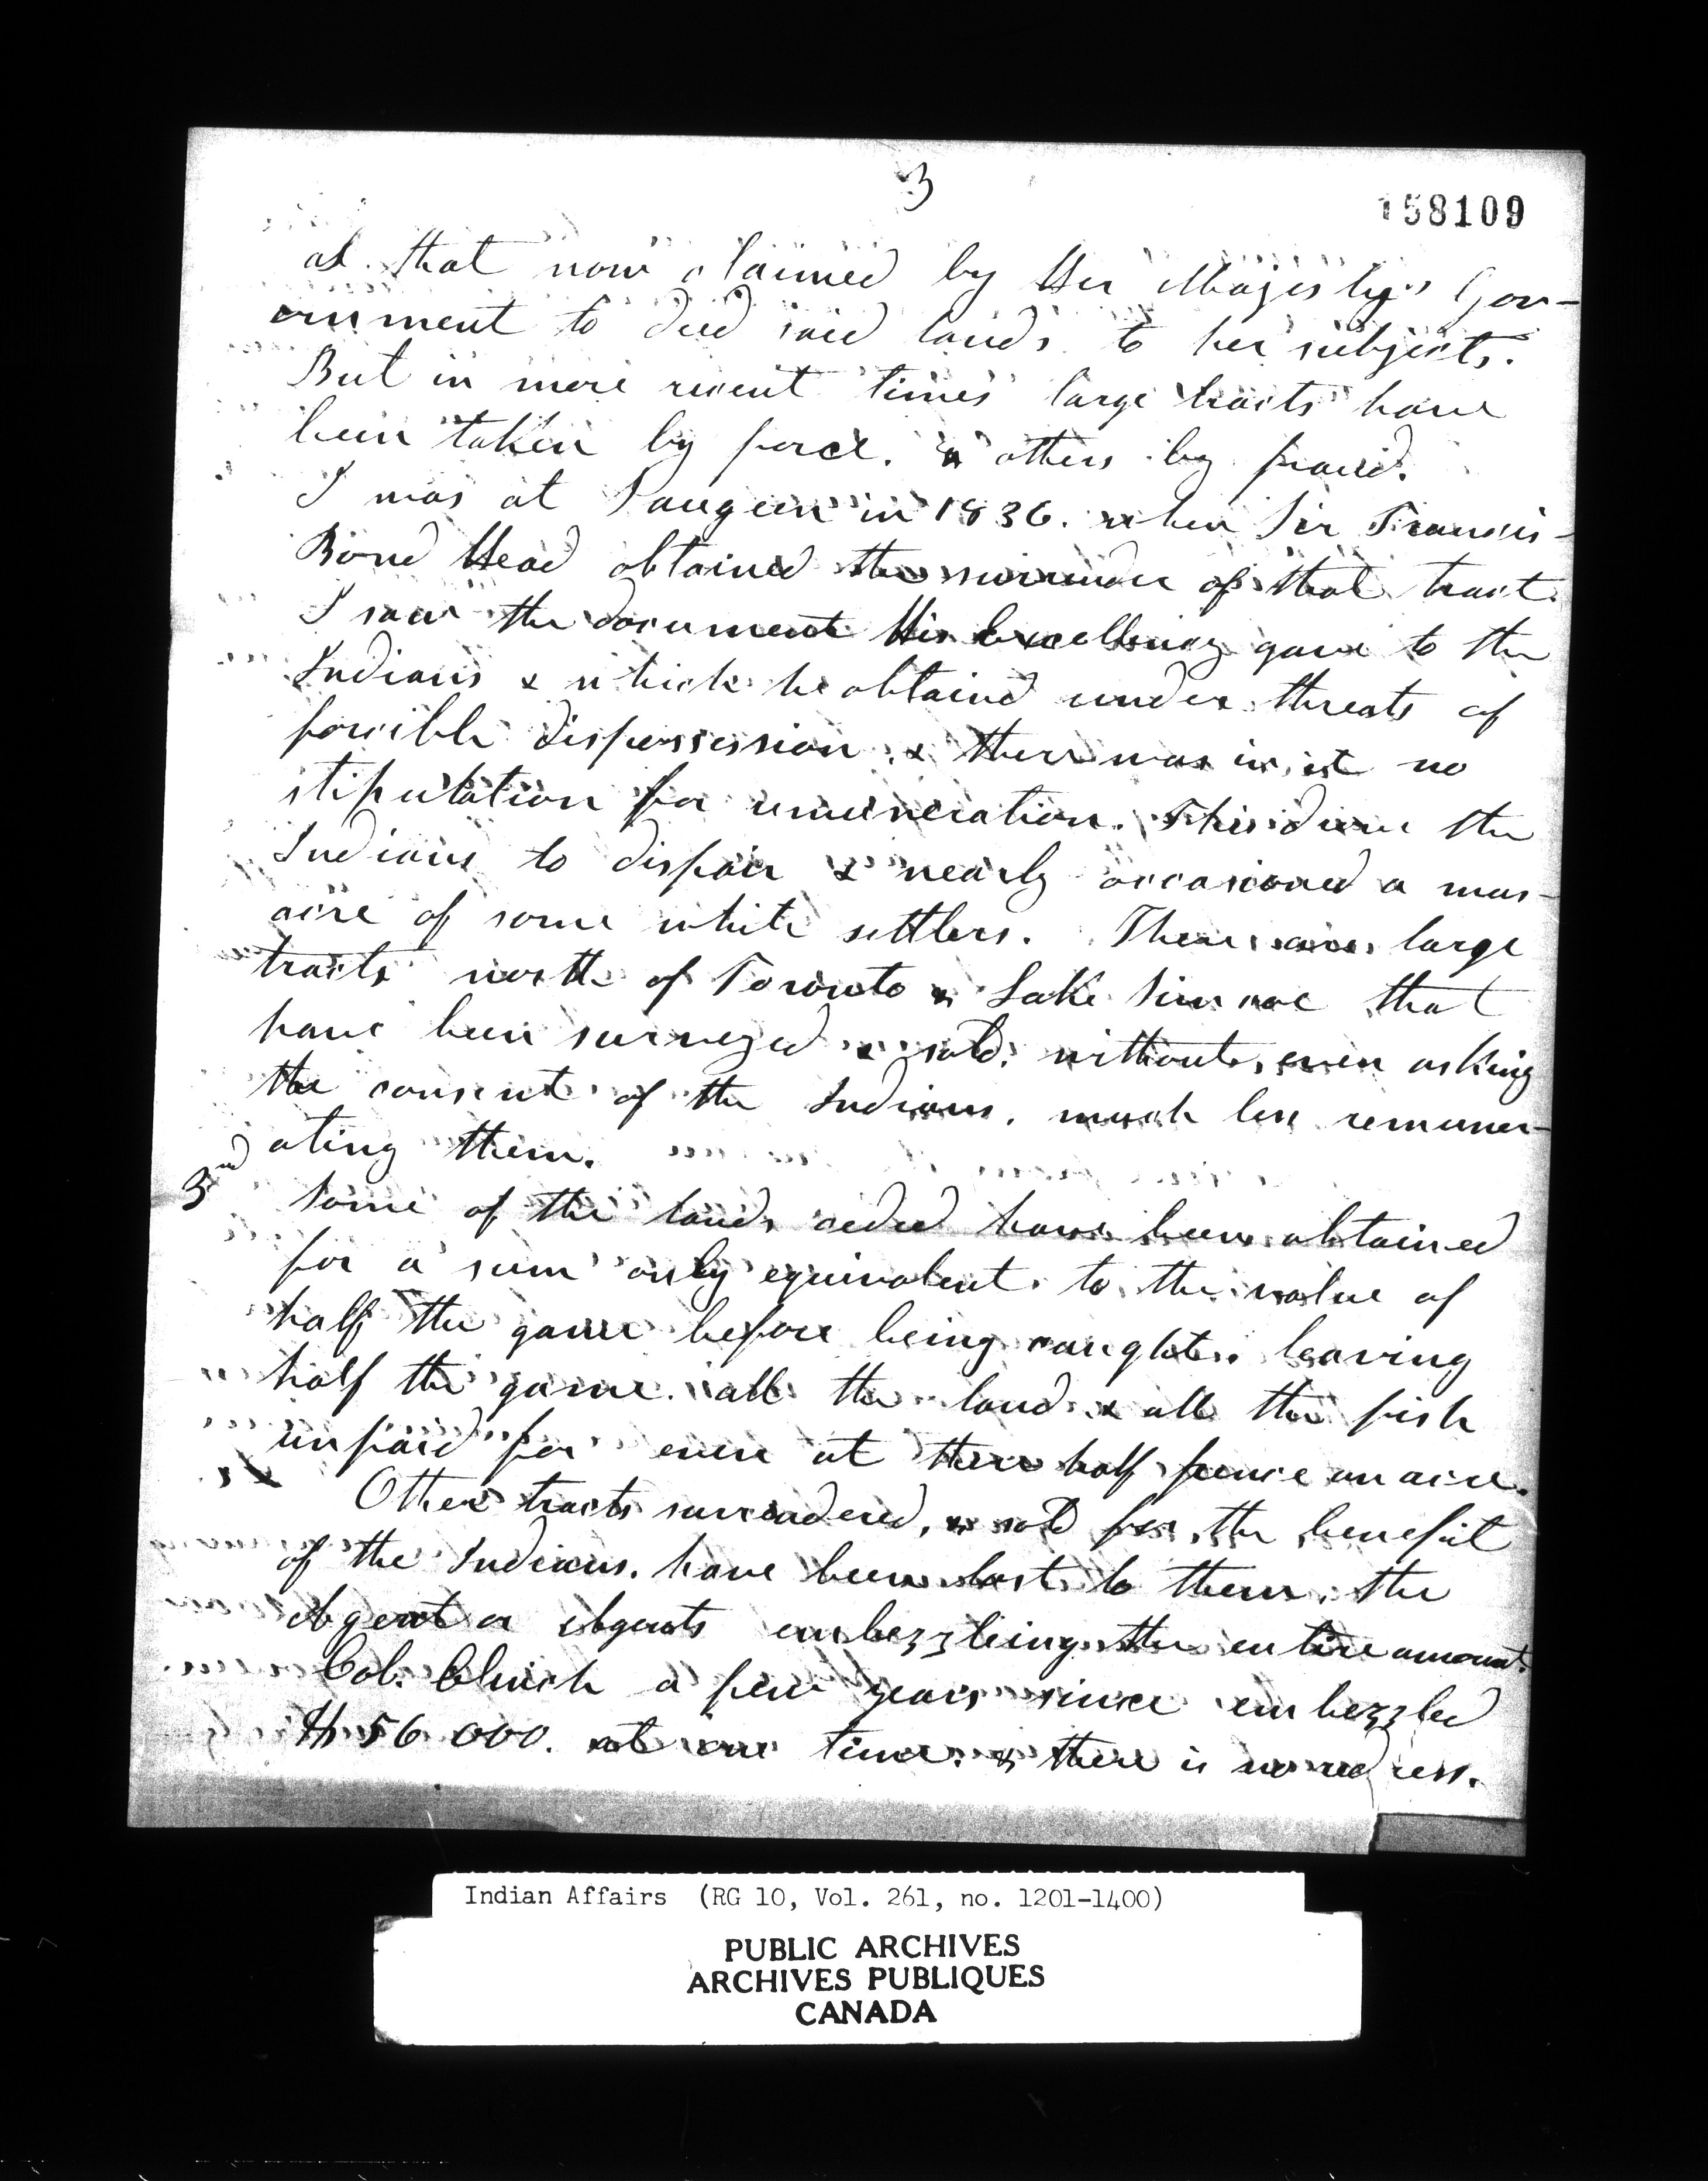 3
158109
as that now claimed by Her Majesty's Gov-
ernment to deed said lands to her subjects.
But in more recent times large tracts have
been taken by force. & others by fraud.
I was at Saugeen in 1836. when Sir Francis-
Bond Head obtained the surrender of that tract.
I saw the document His Excellency gave to the
Indians & which he obtained under threats of
forcible dispossession, & there was in it no
stipulation for remuneration. This drove the
Indians to dispair & nearly occasioned a mas-
acre of some white settlers. There are large
tracts north of Toronto & Lake Simcoe that
have been surveyed & sold, without even asking
the consent of the Indians, much less remuner-
ating them.
3rd Some of the lands ceded have been obtained
for a sum only equivalent to the value of
half the game before being caught. leaving
half the game. all the land & all the fish
unpaid for even at three half pence an acre.
Other tracts surrendered, & sold for the benefit
of the Indians. have been lost to them, the
Agent or Agents embezzleing the entire amount.
Col. Clinch a few years since embezzled
$ 56 000. at one time. & there is no redress.
Indian Affairs (RG 10, Vol. 261, no. 1201-1400)
PUBLIC ARCHIVES
ARCHIVES PUBLIQUES
CANADA